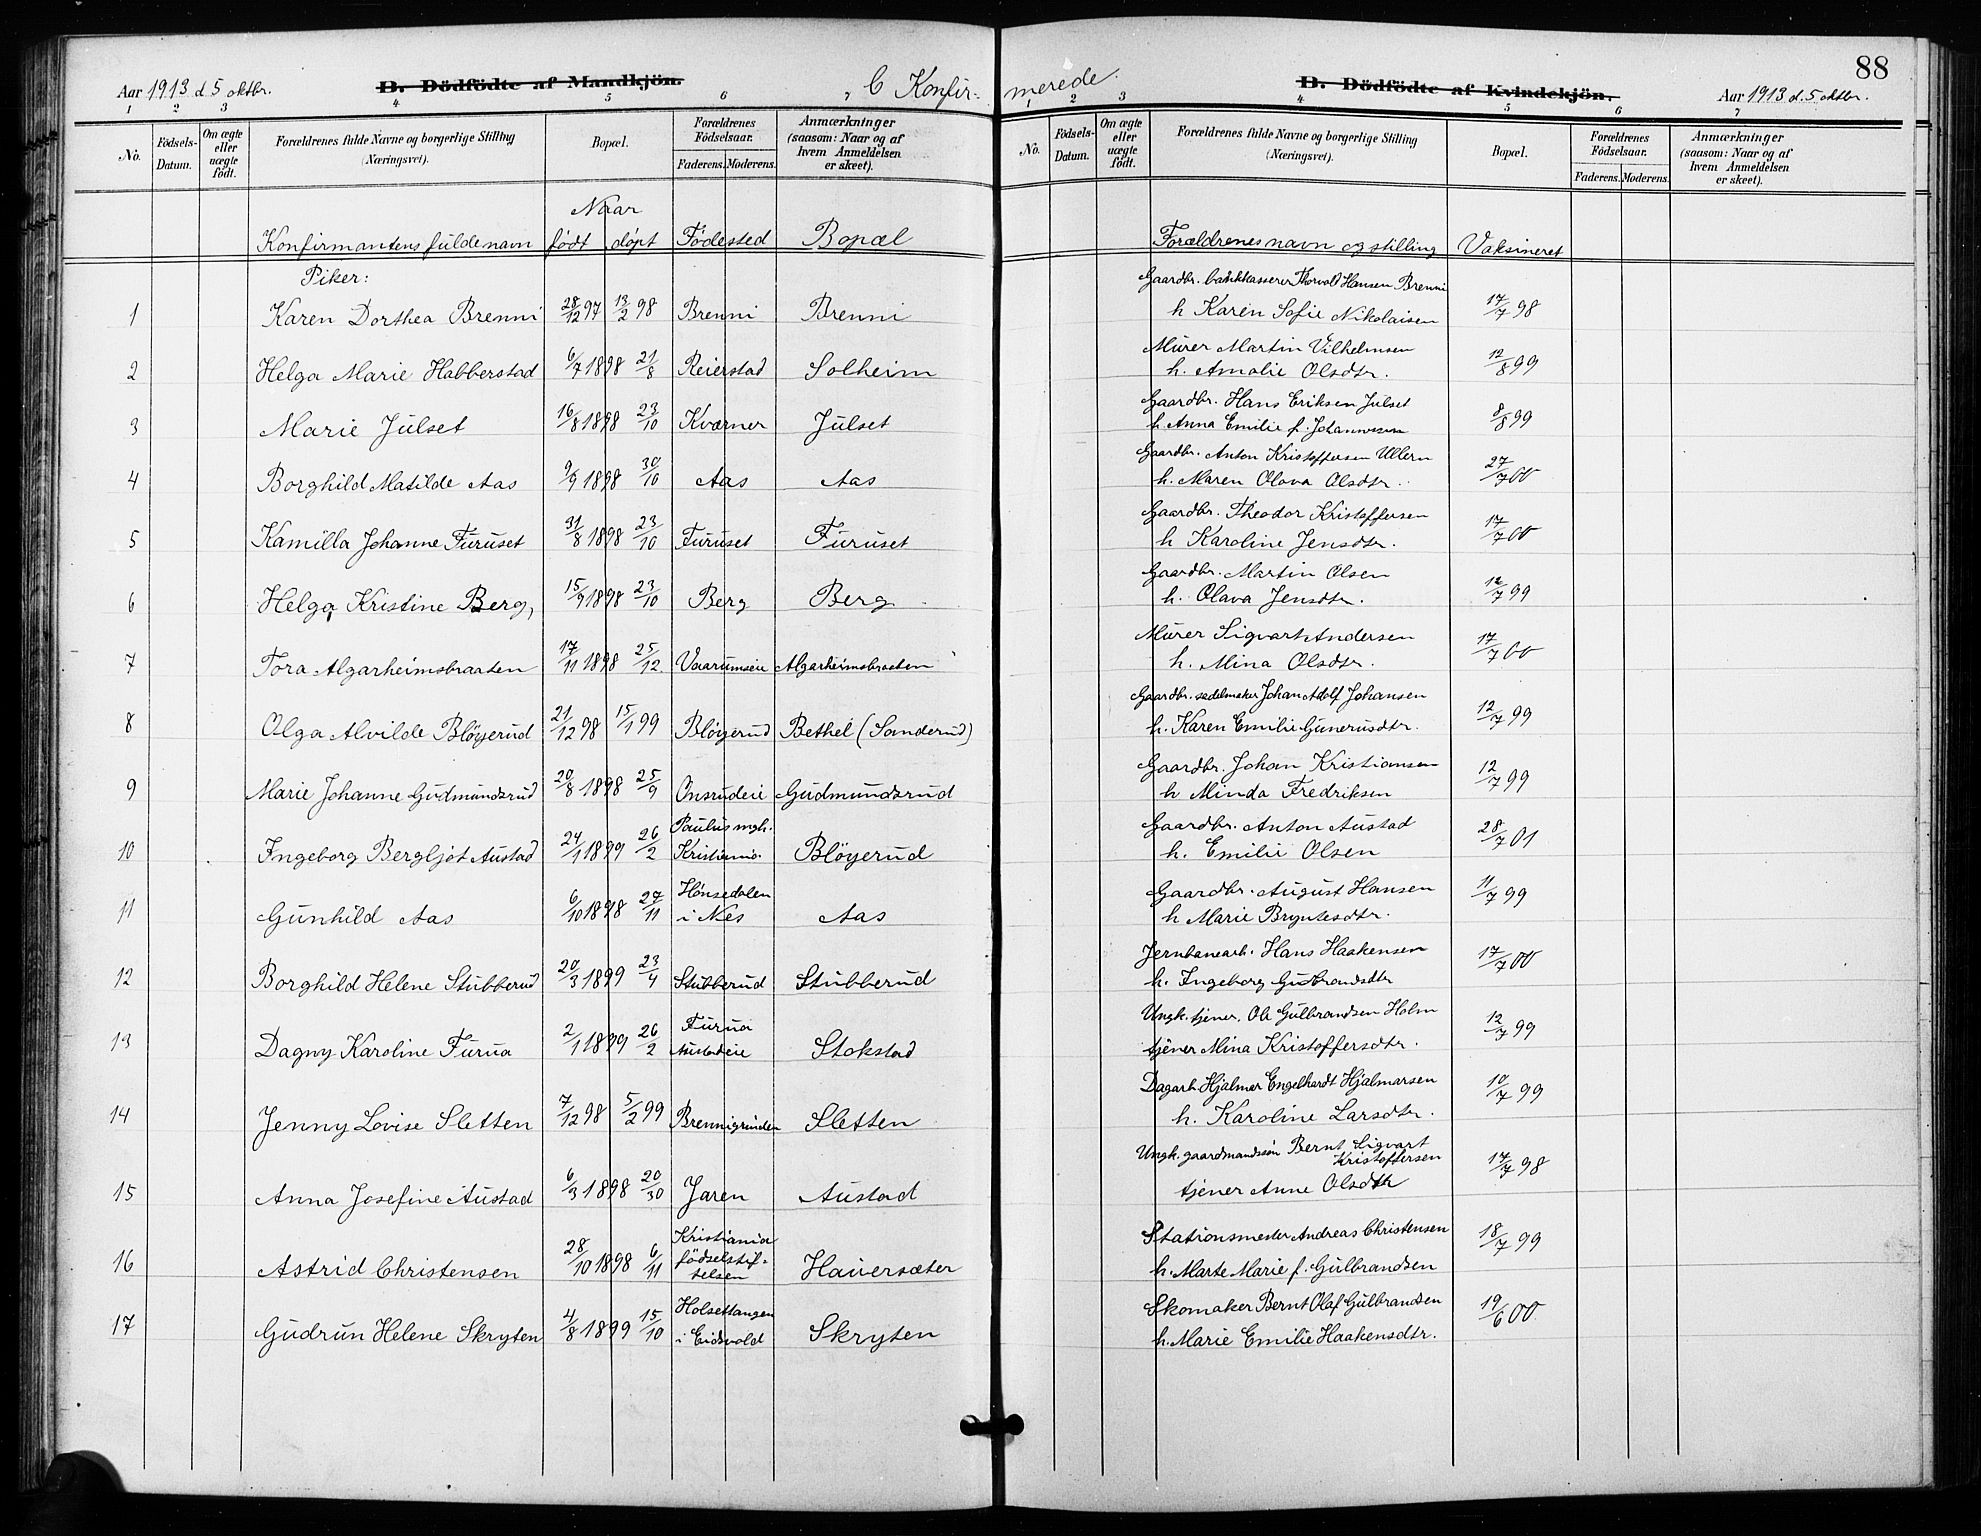 88
Aar 1913 d. 5 oktbr. B. Dödfödte af Mandkjön. C Konfir-
merede. B. Dödfödte af Kvindekjön. Aar 1913 d. 5 oktbr.
1 2 3 4 5 6 7
1 2 3 4 5 6 7
No. Födsels-Datum. Om ægte eller uægte födt. Forældrenes fulde Navne og borgerlige Stilling (Næringsvei). Bopæl. Forældrenes Födselsaar. Faderens. Moderens. Anmærkninger (saasom: Naar og af hvem Anmeldelsen er skeet).
No. Födsels-Datum. Om ægte eller uægte födt. Forældrenes fulde Navne og borgerlige Stilling (Næringsvei). Bopæl. Forældrenes Födselsaar. Faderens. Moderens. Anmærkninger (saasom: Naar og af hvem Anmeldelsen er skeet).
Naar
Konfirmantens fulde navn født døpt Födested Bopæl Forældrenes navn og stilling Vaksineret
Piker:
Gaardbr. bankkasserer Thorvald Hansen Brenni
1 Karen Dorthea Brenni 28/12 97 13/2 98 Brenni Brenni h Karen Sofie Nikolaisen 17/7 98
Murer Martin Vilhelmsen
2 Helga Marie Habberstad 6/7 1898 21/8 Reierstad Solheim h. Amalie Olsdtr. 12/8 99
Gaardbr. Hans Eriksen Julset
3 Marie Julset 16/8 1898 23/10 Kværner Julset h Anna Emilie f. Johannessen 8/8 99
Gaardbr. Anton Kristoffersen Ullern
4 Borghild Matilde Aas 9/9 1898 30/10 Aas Aas h. Maren Olava Olsdtr. 27/7 00
Gaardbr. Theodor Kristoffersen
5 Kamilla Johanne Furuset 31/8 1898 23/10 Furuset Furuset h Karoline Jensdtr. 17/7 00
Gaardbr. Martin Olsen
6 Helga Kristine Berg, 15/9 1898 23/10 Berg Berg h. Olava Jensdtr. 12/7 99
Murer Sigvart Andersen
7 Tora Algarheimsbraaten 17/11 1898 25/12. Vaarumseie Algarheimsbraaten h. Mina Olsdtr. 17/7 00
Gaardbr. sadelmaker Johan Adolf Johansen
8 Olga Alvilde Bløyerud 21/12 98 15/1 99 Bløyerud Bethel (Sanderud) h. Karen Emilie Gunerusdtr. 12/7 99
Gaardbr. Johan Kristiansen
9 Marie Johanne Gudmundsrud 20/8 1898 25/9 Onsrudeie Gudmundsrud h Minda Fredriksen 12/7 99
Paulus mgh. Gaardbr. Anton Austad
10 Ingeborg Bergljot Austad 24/1 1899 26/2 Kristiania Bløyerud h. Emilie Olsen 28/7 01
Hønsedalen Gaardbr. August Hansen
11 Gunhild Aas 6/10 1898 27/11 i Nes Aas h Marie Bryntesdtr. 11/7 99
Jernbanearb. Hans Haakensen
12 Borghild Helene Stubberud 20/3 1899 23/4 Stubberud Stubberud h. Ingeborg Gudbrandsdtr 17/7 00
Furua Ungk. tjener. Ole Gulbrandsen Holm
13 Dagny Karoline Furua 2/1 1899 26/2 Austadeie Stokstad tjener Mina Kristoffersdtr. 12/7 99
Dagarb. Hjalmar Engelhardt Hjalmarsen
14 Jenny Lovise Sletten 7/12 98 5/2 99 Brennigrinden Sletten h. Karoline Larsdtr. 10/7 99
Ungk. gaardmandssøn Bernt Sigvart
Kristoffersen
15 Anna Josefine Austad 6/3 1898 20/30 Jaren Austad tjener Anne Olsdtr 17/7 98
Kristiania Stationsmester Andreas Christensen
16 Astrid Christensen 28/10 1898 6/11 fødselstif-telsen Hauersæter h. Marte Marie f. Gulbrandsen 18/7 99
Holsettangen Skomaker Bernt Olaf Gulbrandsen
17 Gudrun Helene Skryten 4/8 1899 15/10 i Eidsvold Skryten h. Marie Emilie Haakensdtr. 19/6 00